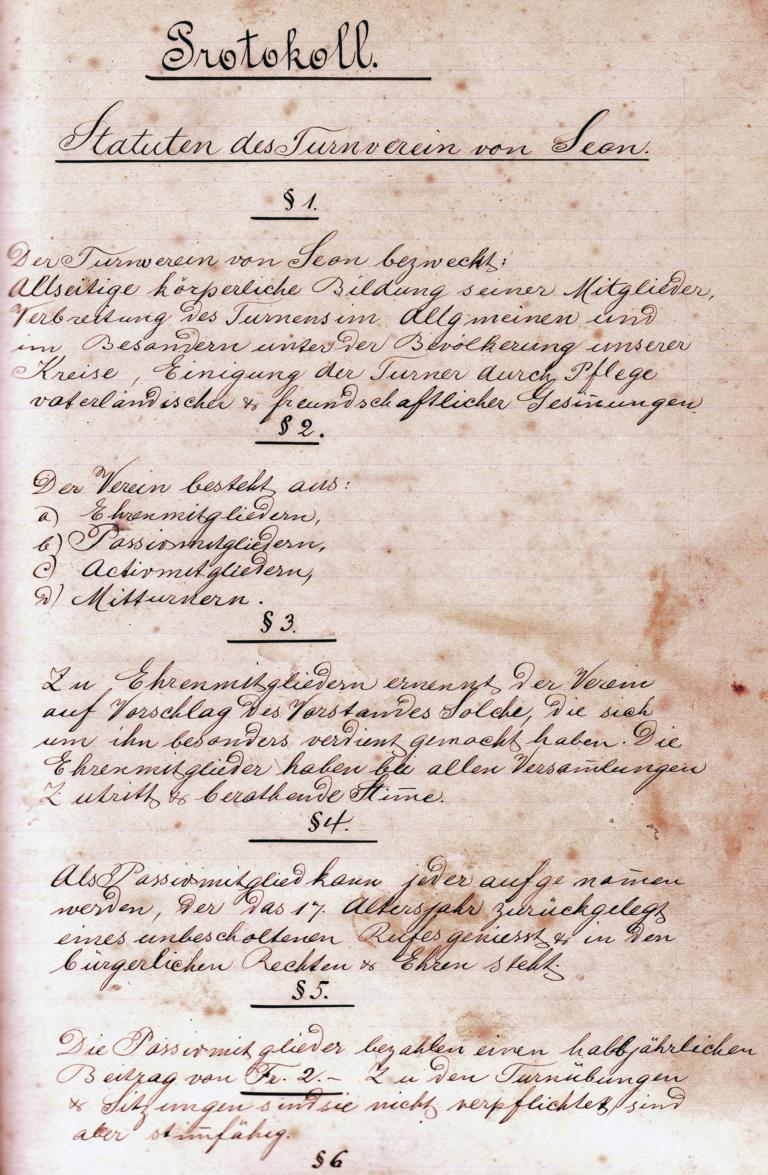 Protokoll.
Statuten des Turnverein von Seon.
§ 1.
Der Turnverein von Seon bezweckt:
Allseitige körperliche Bildung seiner Mitglieder,
Verbreitung des Turnens im Allgmeinen und
im Besondern unter der Bevölkerung unserer
Kreise, Einigung der Turner durch Pflege
vaterländischer & freundschaftlicher Gesin̄ungen
§ 2.
Der Verein besteht aus:
a) Ehrenmitgliedern,
b) Passivmitgliedern,
c) Activmitgliedern,
d) Mitturnern.
§ 3.
Zu Ehrenmitgliedern ernennt der Verein
auf Vorschlag des Vorstandes Solche, die sich
um ihn besonders verdient gemacht haben. Die
Ehrenmitglieder haben bei allen Versam̄lungen
Zutritt & berathende Stim̄e.
§ 4.
Als Passivmitglied kann jeder aufgenom̄en
werden, der das 17. Altersjahr zurückgelegt
eines unbescholtenen Rufes geniesst & in den
bürgerlichen Rechten & Ehren steht.
§ 5.
Die Passivmitglieder bezahlen einen halbjährlichen
Beitrag von Fr. 2.- Zu den Turnübungen
& Sitzungen sind sie nicht verpflichtet, sind
aber stim̄fähig.
§ 6